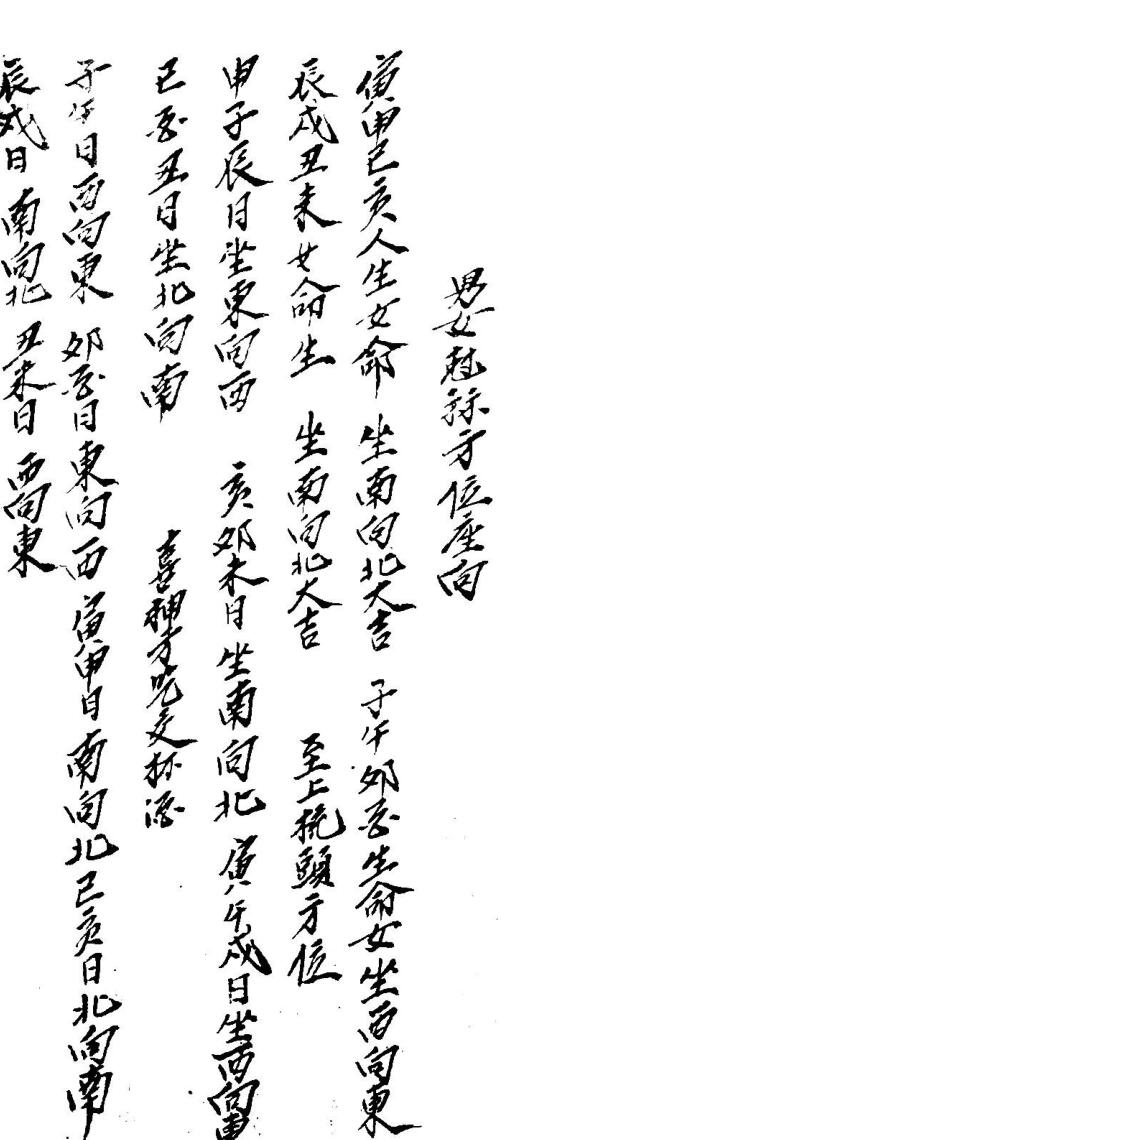 男女趂祿方位座向
寅申巳亥人生女命 坐南向北大吉 子午卯酉生命女坐西向東
辰戌丑未女命生 坐南向北大吉 至上梳頭方位
申子辰日坐東向西 亥卯未日坐南向北 寅午戌日坐西向東
巳酉丑日坐北向南 喜神方吃交杯酒
子午日西向東 卯酉日東向西 寅申日南向北 巳亥日北向南
辰戌日南向北 丑未日西向東